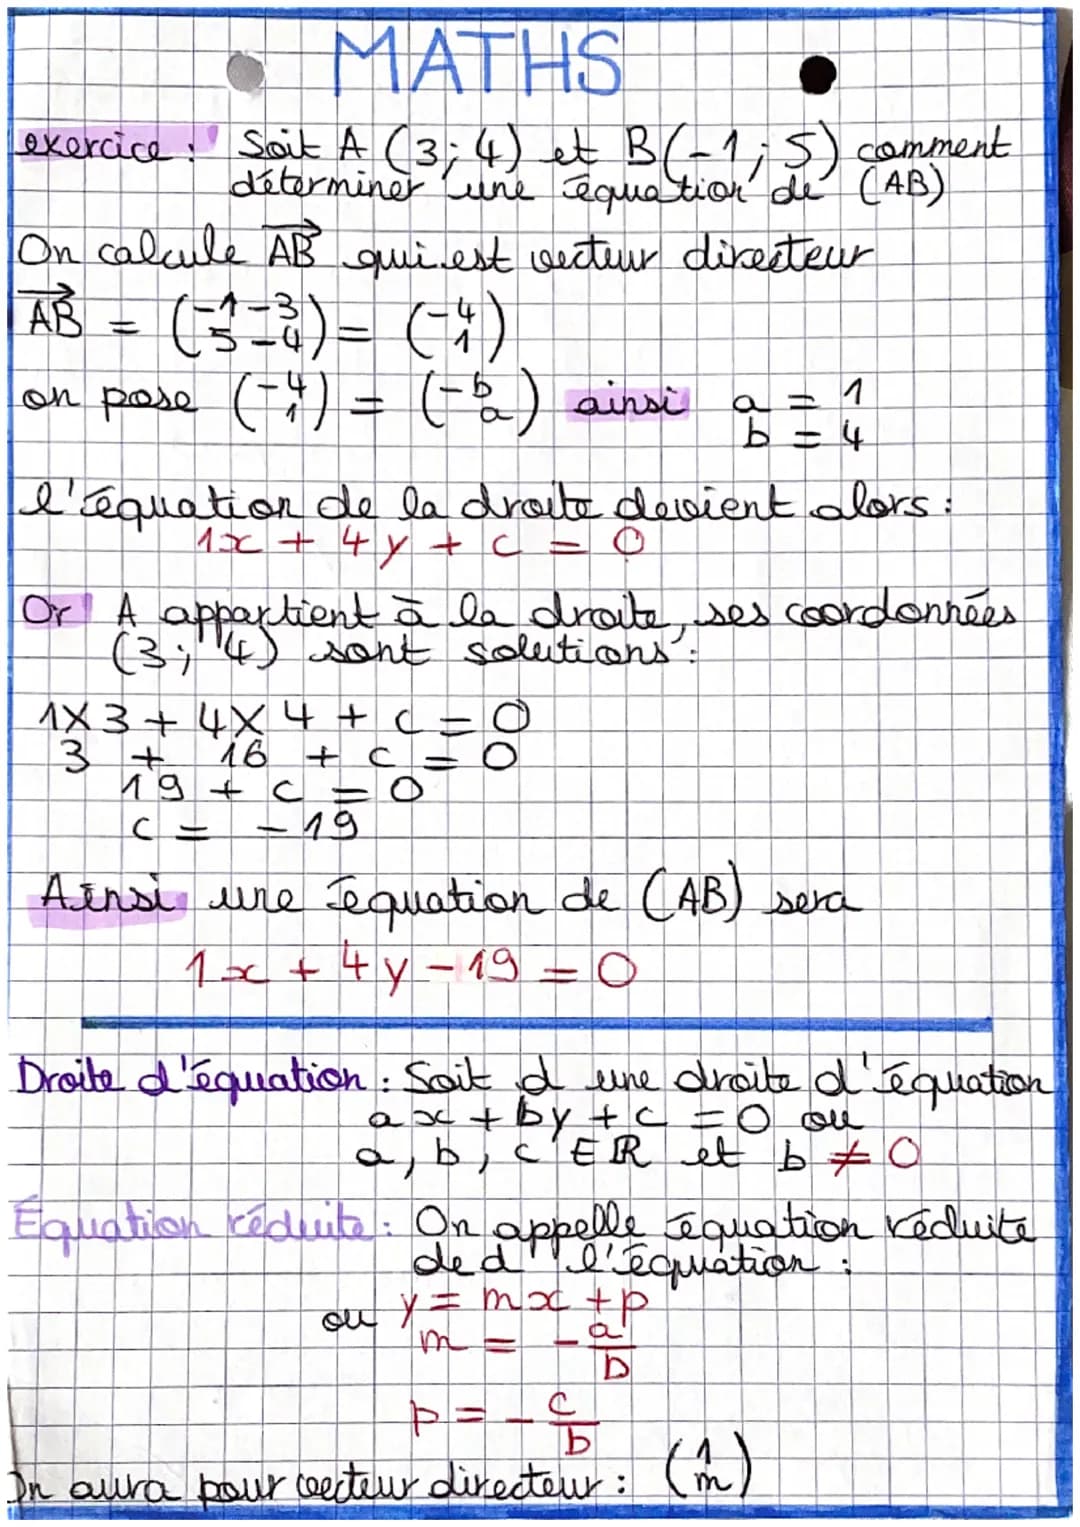 MATHS
exercice : Soit A (3; 4) et B(-1; 5) comment
déterminer une équation de (AB)
On calcule AB→ qui est vecteur directeur
AB→ = (-1-3 / 5-4) = (-4 / 1)
on pose (-4 / 1) = (-b / a) ainsi a = 1
b = 4
l'équation de la droite devient alors :
1x + 4y + c = 0
Or A appartient à la droite, ses coordonnées
(3; 4) sont solutions :
1X3 + 4X4 + c = 0
3 + 16 + c = 0
19 + c = 0
c = -19
Ainsi une équation de (AB) sera
1x + 4y - 19 = 0
Droite d'équation : Soit d une droite d'équation
ax + by + c = 0 ou
a, b, c ∈ ℝ et b ≠ 0
Équation réduite : On appelle équation réduite
de d l'équation :
y = mx + p
ou m = -a/b
p = -c/b
On aura pour vecteur directeur : (1 / m)